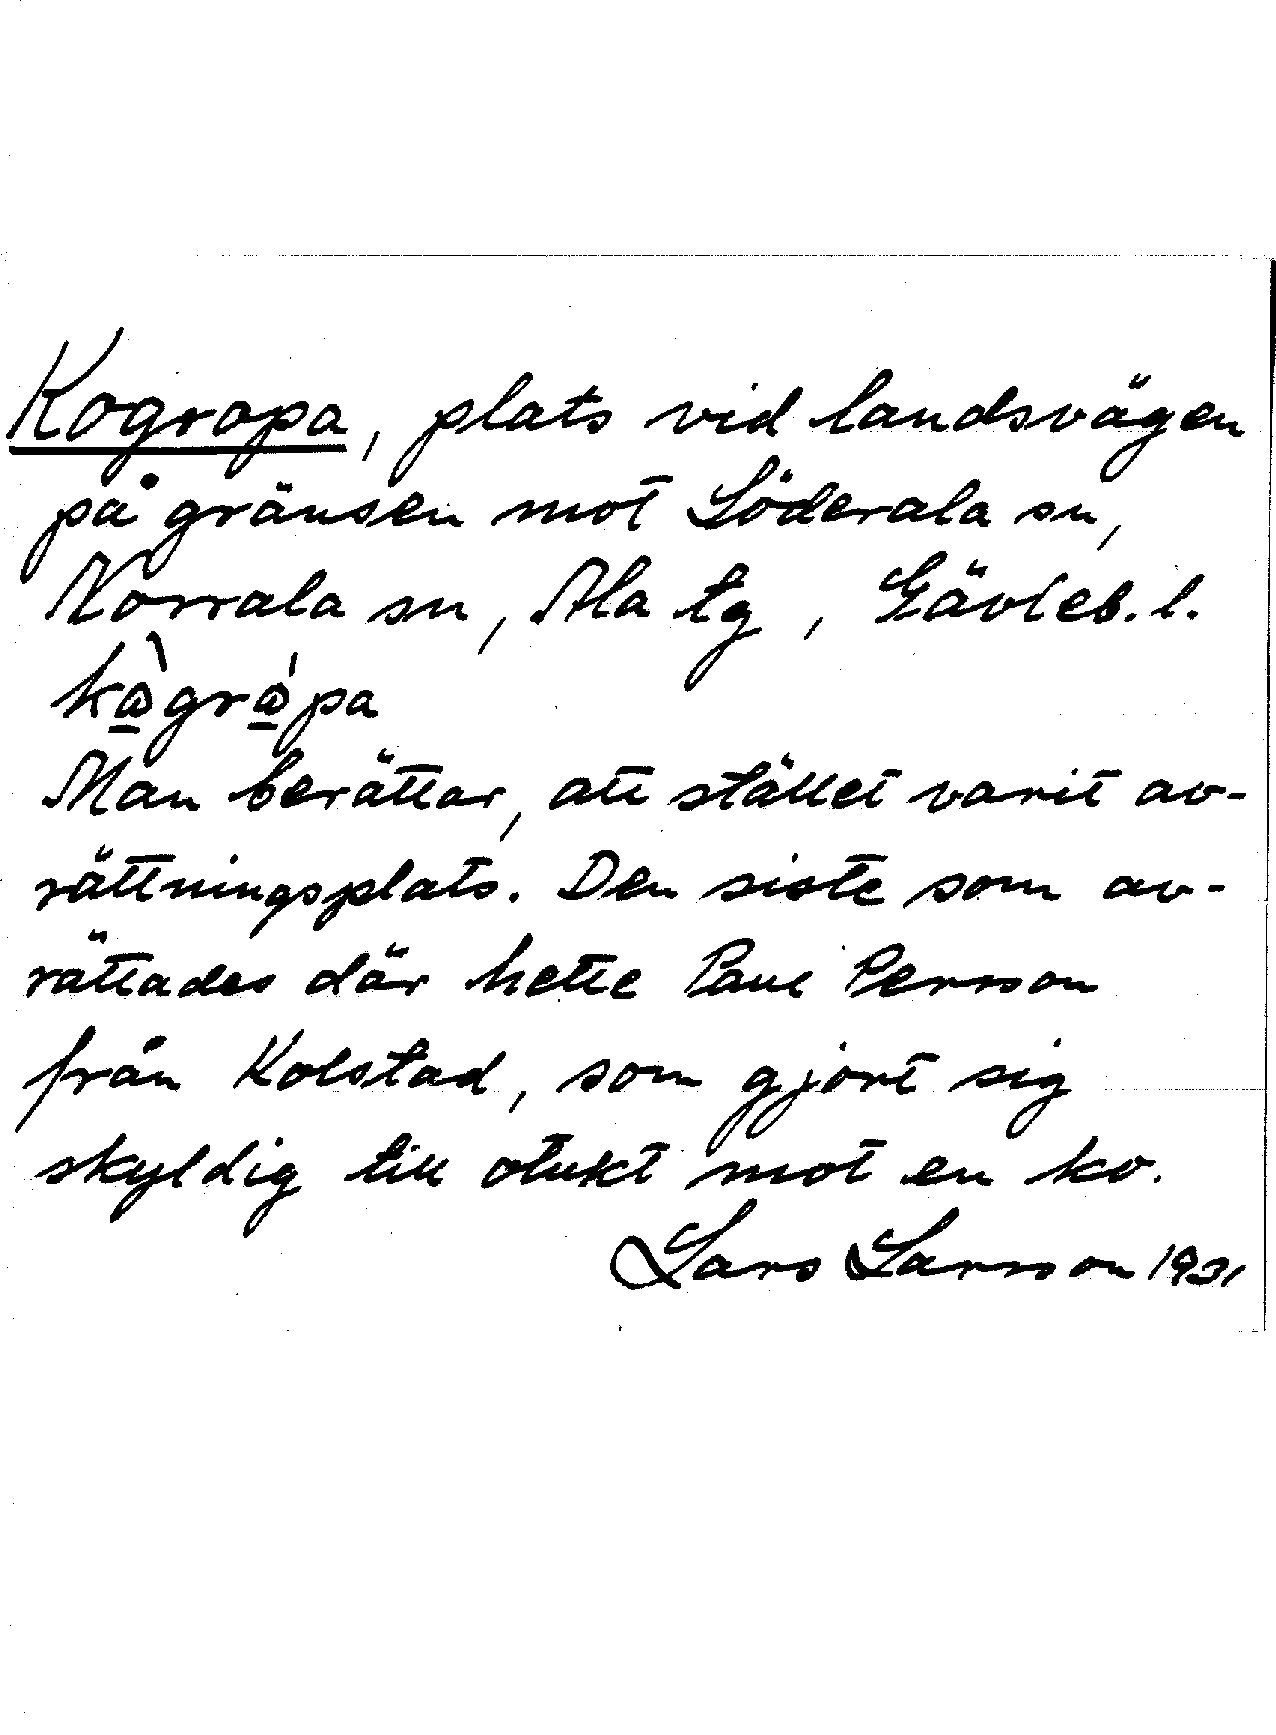 Kogropa, plats vid landsvägen
på gränsen mot Söderala sn,
Norrala sn, Ala tg, Gävleb. l.
Man berättar, att stället varit av-
rättningsplats. Den siste som av-
rättades där hette Paul Persson
från Kolstad, som gjort sig
skyldig till otukt mot en ko.
Lars Larsson 1931